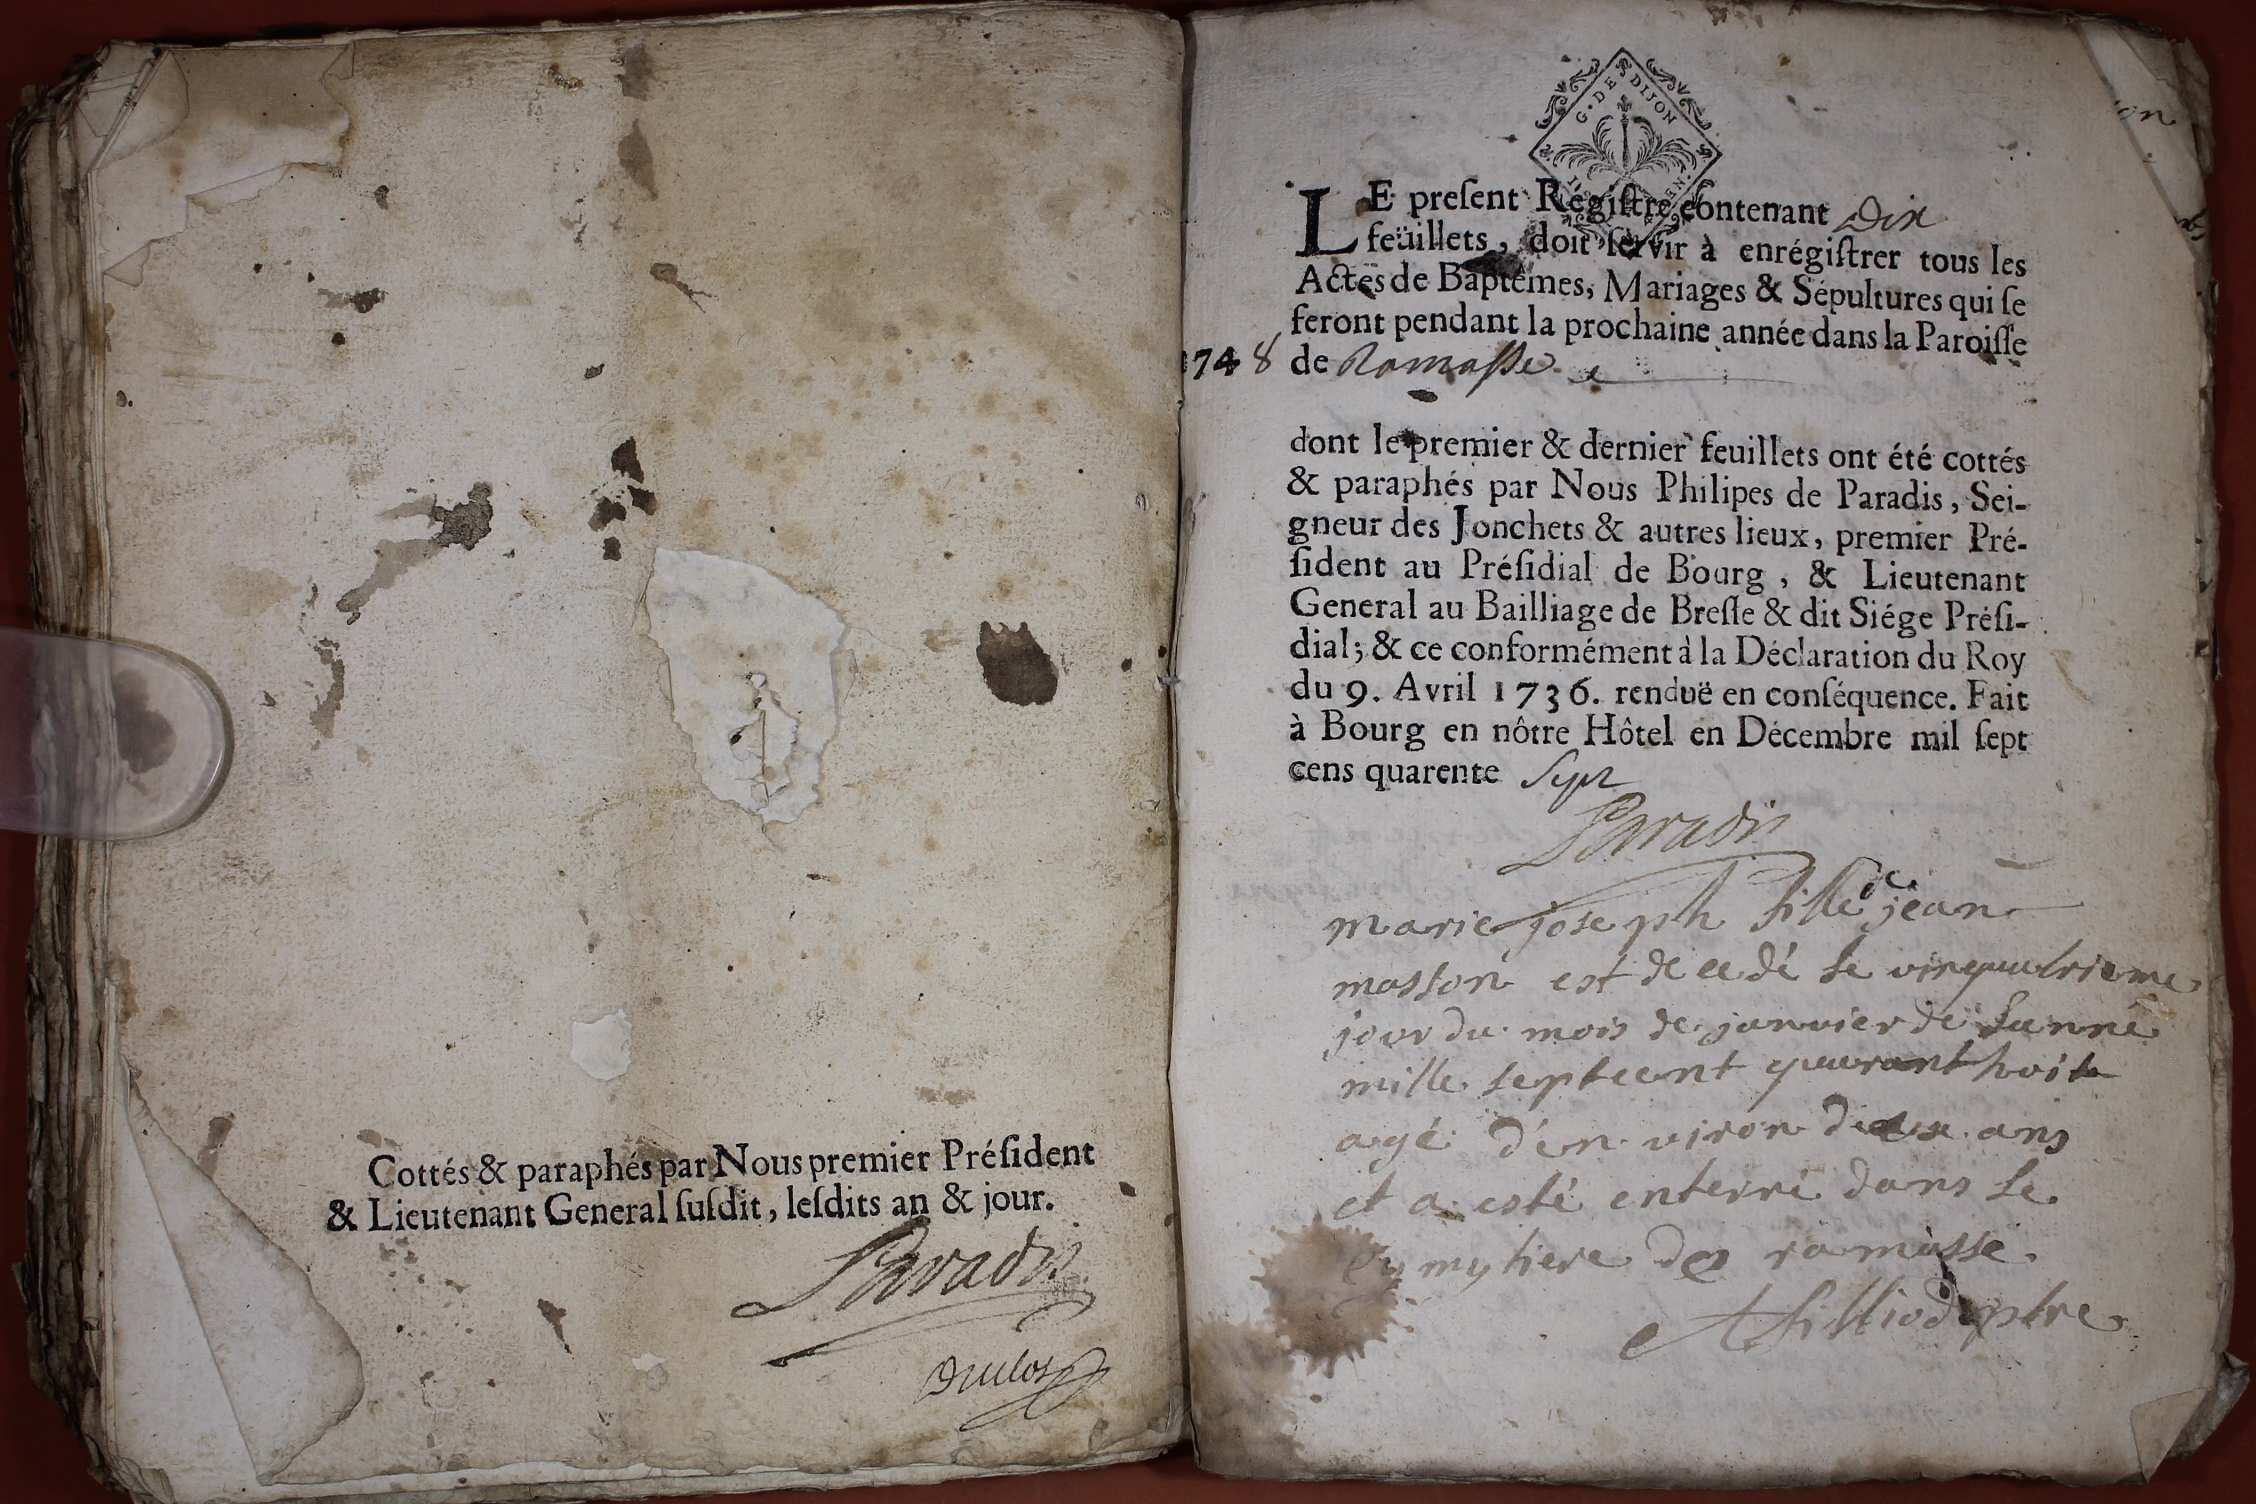 Cottés & paraphés par Nous premier Préſident
& Lieutenant General ſuſdit, leſdits an & jour.
Paradis
Duclos
G. DE DIJON
LE preſent Régiſtre contenant Dix
feüillets, doit ſervir à enrégiſtrer tous les
Actes de Baptêmes, Mariages & Sépultures qui ſe
feront pendant la prochaine année dans la Paroiſſe
1748 de Ramasse
dont le premier & dernier feuillets ont été cottés
& paraphés par Nous Philipes de Paradis, Sei-
gneur des Jonchets & autres lieux, premier Pré-
ſident au Préſidial de Bourg, & Lieutenant
General au Bailliage de Breſſe & dit Siége Préſi-
dial; & ce conformément à la Déclaration du Roy
du 9. Avril 1736. renduë en conſéquence. Fait
à Bourg en nôtre Hôtel en Décembre mil ſept
cens quarente Sept
Paradis
marie joseph fille de jean
masson est decedé le vinquatrieme
jour du mois de janvier de lanné
mille septcent quarant huit
agé d'environ deux ans
et a esté enterré dans le
cymytiere de ramasse
filliod ptre